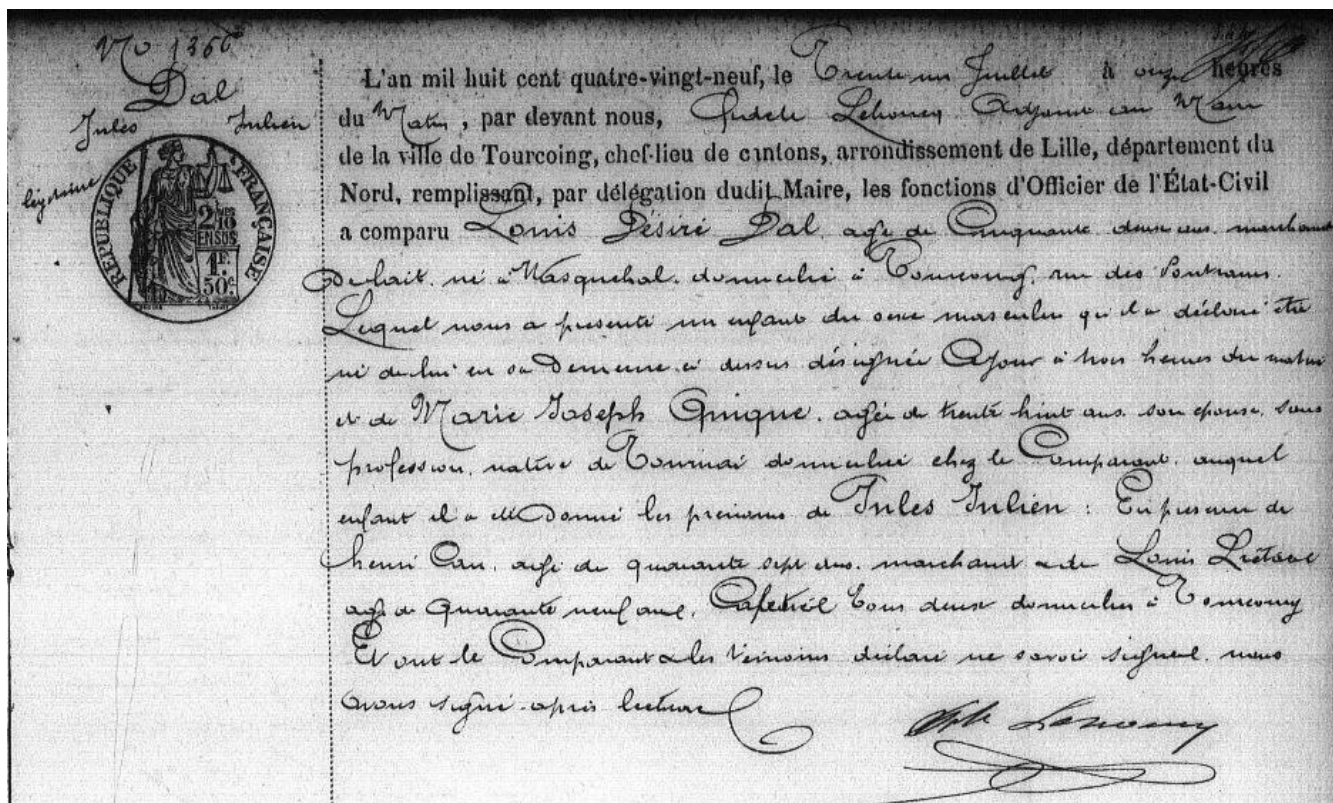 No 1356
Dal
Jules Julien
légitime
RÉPUBLIQUE FRANÇAISE
2/10
EN SUS
1F.
50c
L'an mil huit cent quatre-vingt-neuf, le Trente un Juillet à onze heures
du Matin, par devant nous, Lehoucq Adjoint au Maire
de la ville de Tourcoing, chef-lieu de cantons, arrondissement de Lille, département du
Nord, remplissant, par délégation dudit Maire, les fonctions d'Officier de l'État-Civil
a comparu Louis Désiré Dal, agé de Cinquante deux ans, marchand
De lait, né à Wasquehal, domicilié à Tourcoing, rue des
Lequel nous a présenté un enfant du sexe masculin qu'il a déclaré être
né de lui en sa Demeure ci dessus désignée Ce jour à trois heures du matin
et de Marie Joseph Quique, agée de trente huit ans, son épouse, sans
profession, native de Tournai domiciliée chez le Comparant, auquel
enfant il a dit Donné les prénoms de Jules Julien : En présence de
henri agé de quarante sept ans, marchand & de Louis
agé de Quarante neuf ans, Cafetier tous deux domiciliés à Tourcoing
Et ont le Comparant & les témoins déclaré ne savoir signer, nous
avons signé après lecture